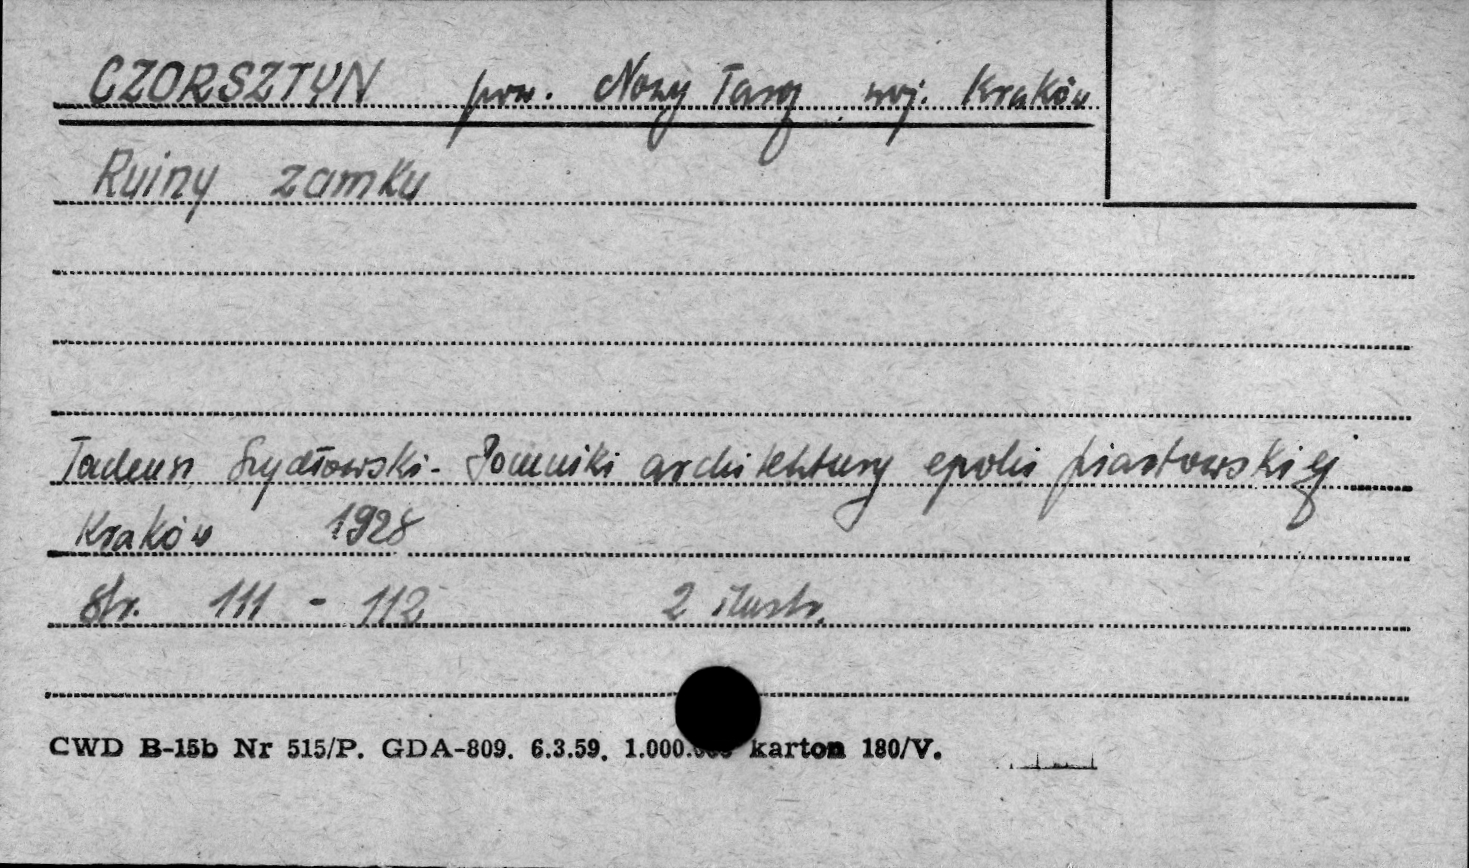 CZORSZTYN pow. Nowy Targ woj. Kraków
Ruiny zamku
Tadeusz Szydłowski - Pomniki architektury epoki piastowskiej
Kraków 1928
Str. 111 - 112 2 ilustr.
CWD B-15b Nr 515/P. GDA-809. 6.3.59. 1.000.000 karton 180/V.